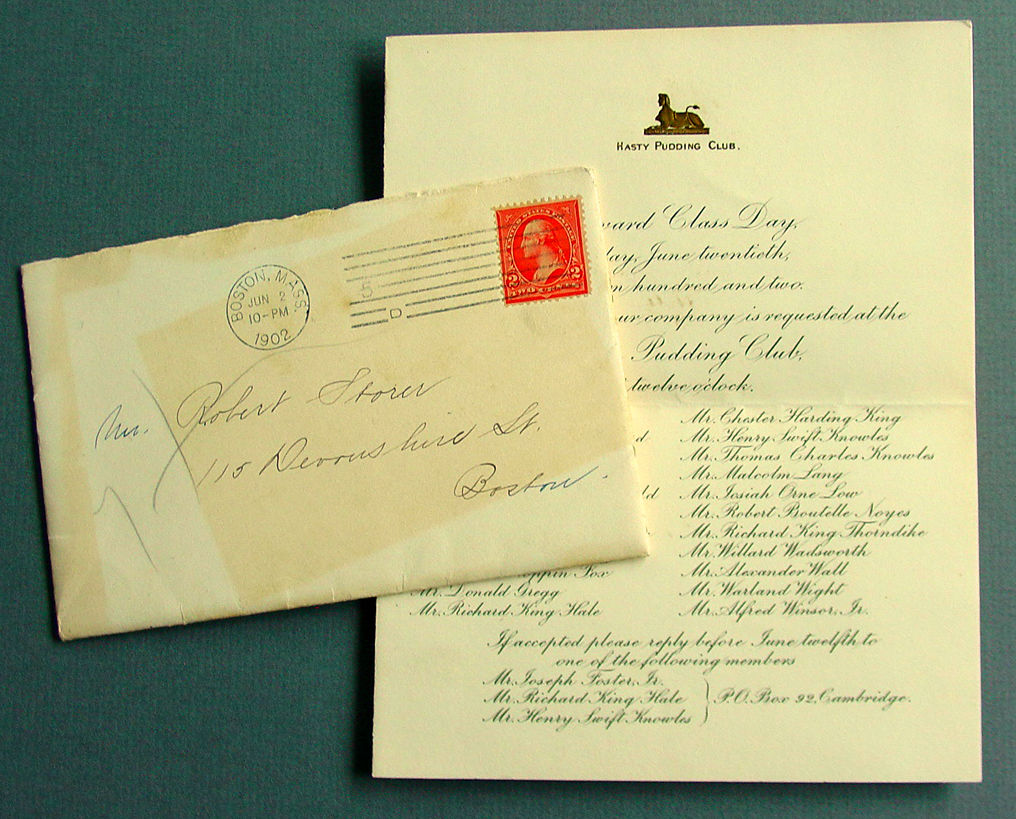 HASTY PUDDING CLUB.
Class Day,
June twentieth,
hundred and two.
company is requested at the
Pudding Club,
twelve o'clock.
Mr. Chester Harding King
Mr. Henry Swift Knowles
Mr. Thomas Charles Knowles
Mr. Malcolm Lang
Mr. Josiah Orne Low
Mr. Robert Boutelle Noyes
Mr. Richard King Thorndike
Mr. Willard Wadsworth
Mr. Alexander Wall
Mr. Warland Wight
Mr. Alfred Winsor, Jr.
Fox
Mr. Donald Gregg
Mr. Richard King Hale
If accepted please reply before June twelfth to
one of the following members
Mr. Joseph Foster, Jr.
Mr. Richard King Hale
Mr. Henry Swift Knowles
P.O. Box 92, Cambridge.
BOSTON, MASS.
JUN 2
10-PM
1902
D
UNITED STATES POSTAGE
2 2
TWO CENTS
Mr. Robert Storer
115 Devonshire St.
Boston.